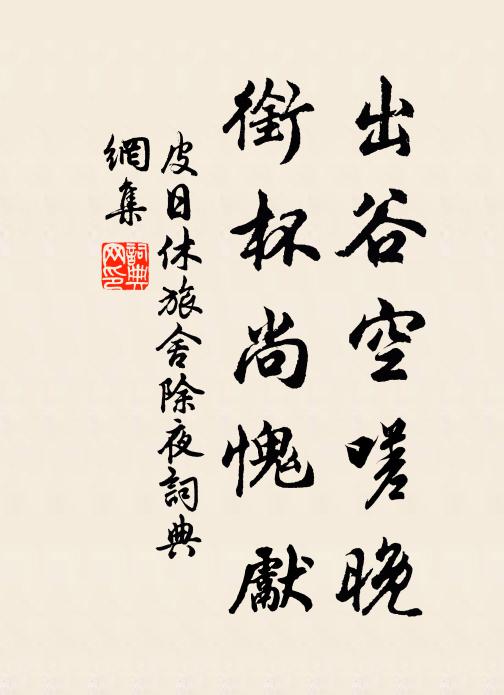 出谷空嗟晚
銜杯尚愧獻
皮日休旅舍除夜詞典
網集
詞典
网印